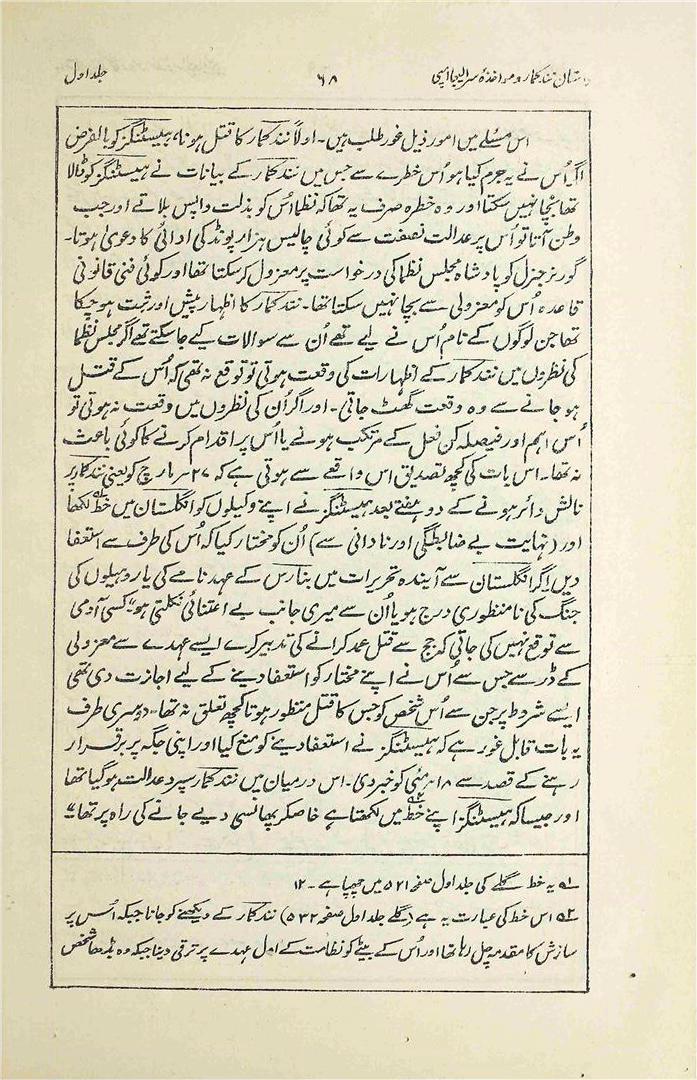 داستان نند کمار و مواخذہٴ سر الیجا امپی ۶۸ جلد اول
اس مسٔلے میں امور ذیل غور طلب ہیں۔ اولاً نند کمار کا قتل ہونا، ہیسٹنگز کو بالفرض
اگر اُس نے یہ جرم کیا ہو اُس خطرے سے جس میں نند کمار کے بیانات نے ہیسٹنگز کو ڈالا
تھا بچا نہیں سکتا اور وہ خطرہ صرف یہ تھا کہ نظما اُس کو بذلت واپس بلاتے اور جب
وطن آتا تو اُس پر عدالت نصفت سے کوئی چالیس ہزار پونڈ کی ادائی کا دعویٰ ہوتا۔
گورنر جنرل کو پادشاہ مجلس نظما کی درخواست پر معزول کر سکتا تھا اور کوئی فنی قانونی
قاعدہ اُس کو معزولی سے بچا نہیں سکتا تھا۔ نند کمار کا اظہار پیش اور ثبت ہو چکا
تھا جن لوگوں کے نام اُس نے لیے تھے اُن سے سوالات کیے جا سکتے تھے اگر مجلس نظما
کی نظروں میں نند کمار کے اظہارات کی وقعت ہوتی تو توقع نہ تھی کہ اُس کے قتل
ہو جانے سے وہ وقعت گھٹ جاتی۔ اور اگر اُن کی نظروں میں وقعت نہ ہوتی تو
اُس اہم اور فیصلہ کن فعل کے مرتکب ہونے یا اُس پر اقدام کرنے کا کوئی باعث
نہ تھا۔ اس بات کی کچھ تصدیق اس واقعے سے ہوتی ہے کہ ۲۷؍ مارچ کو یعنی نند کمار پر
نالش دائر ہونے کے دو ہفتے بعد ہیسٹنگز نے اپنے وکیلوں کو انگلستان میں خط لکھا
اور (نہایت بے ضابطگی اور نادانی سے) اُن کو مختار کیا کہ اُس کی طرف سے استعفا
دیں اگر انگلستان سے آیندہ تحریرات میں بنارس کے عہد نامے کی یا روہیلوں کی
جنگ کی نامنظوری درج ہو یا اُن سے میری جانب بے اعتنائی نکلتی ہو" کسی آدمی
سے توقع نہیں کی جاتی کہ جج سے قتل عمد کرانے کی تدبیر کرے ایسے عہدے سے معزولی
کے ڈر سے جس سے اُس نے اپنے مختار کو استعفا دینے کے لیے اجازت دی تھی
ایسے شروط پر جن سے اُس شخص کو جس کا قتل منظور ہوتا کچھ تعلق نہ تھا۔ دوسری طرف
یہ بات قابل غور ہے کہ ہیسٹنگز نے استعفا دینے کو منع کیا اور اپنی جگہ پر برقرار
رہنے کے قصد سے ۱۸؍ مئی کو خبر دی۔ اس درمیان میں نند کمار سپرد عدالت ہو گیا تھا
اور جیسا کہ ہیسٹنگز اپنے خط میں لکھتا ہے خاصکر پھانسی دیے جانے کی راہ پر تھا"
لہ یہ خط گلے کی جلد اول صفحہ ۵۲۱ میں چھپا ہے۔ ۱۲
۲ہ اس خط کی عبارت یہ ہے (گلے جلد اول صفحہ ۵۳۲) نند کمار کے دیکھنے کو جانا جبکہ اُس پر
سازش کا مقدمہ چل رہا تھا اور اُس کے بیٹے کو نظامت کے اول عہدے پر ترقی دینا جبکہ وہ بڈھا شخص